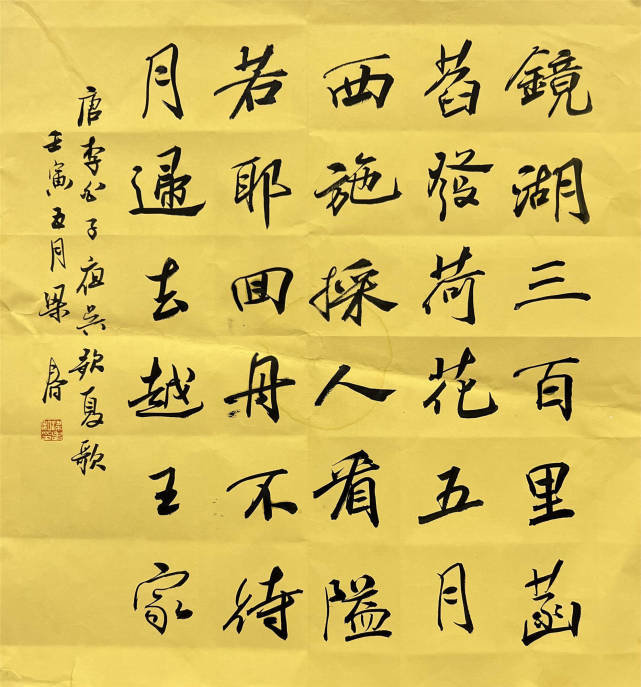 鏡湖三百里菡
萏發荷花五月
西施採人看隘
若耶回舟不待
月歸去越王家
唐李白子夜吳歌夏歌
壬寅五月梁